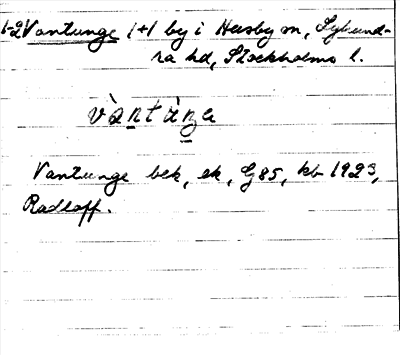 1-2 Vantunge 1+1 by i Husby sn, Lyhund-
ra hd, Stockholms l.
vàntùŋa
Vantunge bek, ek, G85, kb 1923,
Radloff.